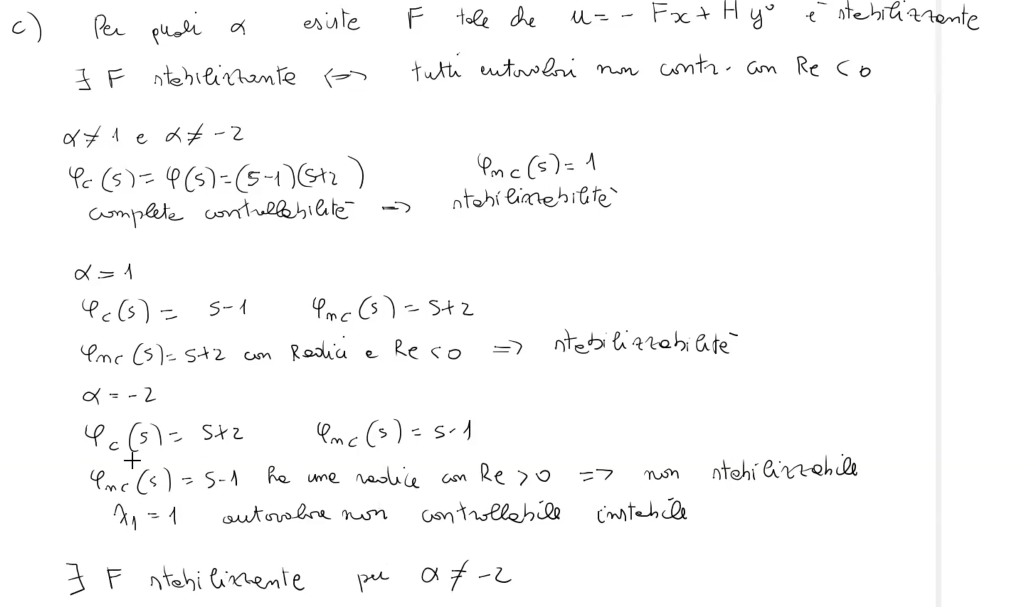 c) Per quali α esiste F tale che u = - Fx + H y° è stabilizzante
∃ F stabilizzante ⇔ tutti autovalori non contr. con Re < 0
α ≠ 1 e α ≠ -2
φc(s) = φ(s) = (s-1)(s+2) φnc(s) = 1
completa controllabilità => stabilizzabilità
α = 1
φc(s) = s-1 φnc(s) = s+2
φnc(s) = s+2 con Radici a Re < 0 => stabilizzabilità
α = -2
φc(s) = s+2 φnc(s) = s-1
φnc(s) = s-1 ha una radice con Re > 0 => non stabilizzabile
λ₁ = 1 autovalore non controllabile instabile
∃ F stabilizzante per α ≠ -2